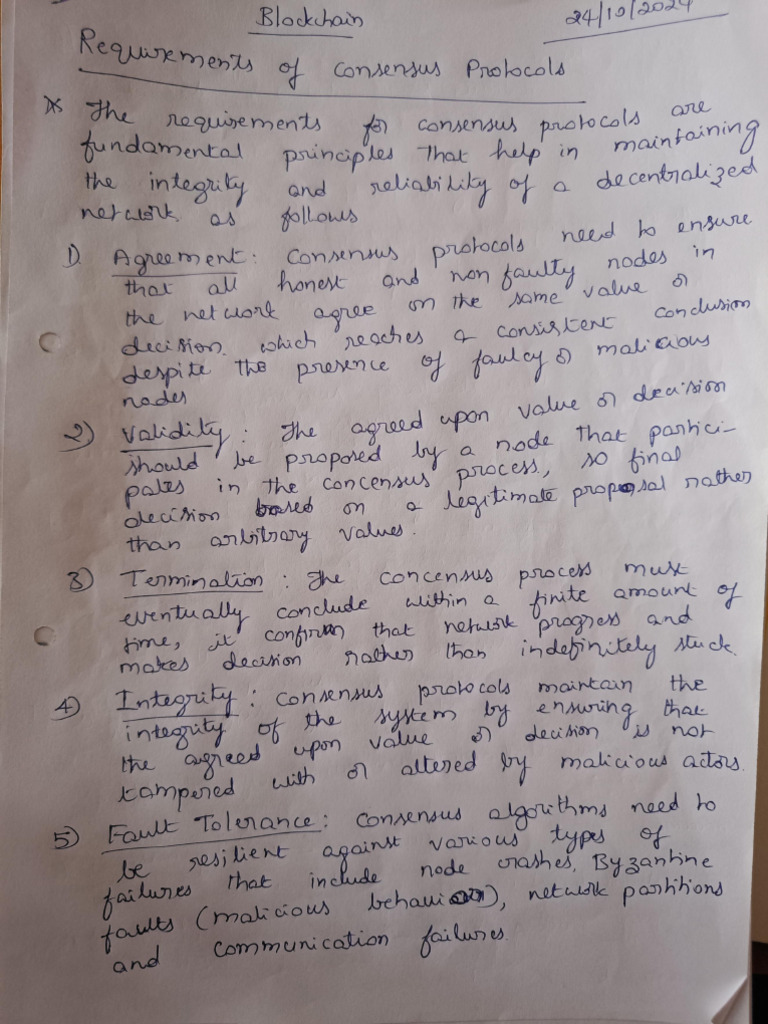 Blockchain
24/10/2024
Requirements of Consensus Protocols
* The requirements for consensus protocols are
fundamental principles that help in maintaining
the integrity and reliability of a decentralized
network as follows
1) Agreement: Consensus protocols need to ensure
that all honest and non faulty nodes in
the network agree on the same value or
decision. which reaches a consistent conclusion
despite the presence of faulty or malicious
nodes
2) Validity: The agreed upon value or decision
should be proposed by a node that partici-
pates in the concensus process, so final
decision based on a legitimate proposal rather
than arbitrary values.
3) Termination: The concensus process must
eventually conclude within a finite amount of
time, it confirm that network progress and
makes decision rather than indefinitely stuck.
4) Integrity: Consensus protocols maintain the
integrity of the system by ensuring that
the agreed upon value or decision is not
tampered with or altered by malicious actors.
5) Fault Tolerance: Consensus algorithms need to
be resilient against various types of
failures that include node crashes, Byzantine
faults (malicious behaviour), network partitions
and communication failures.